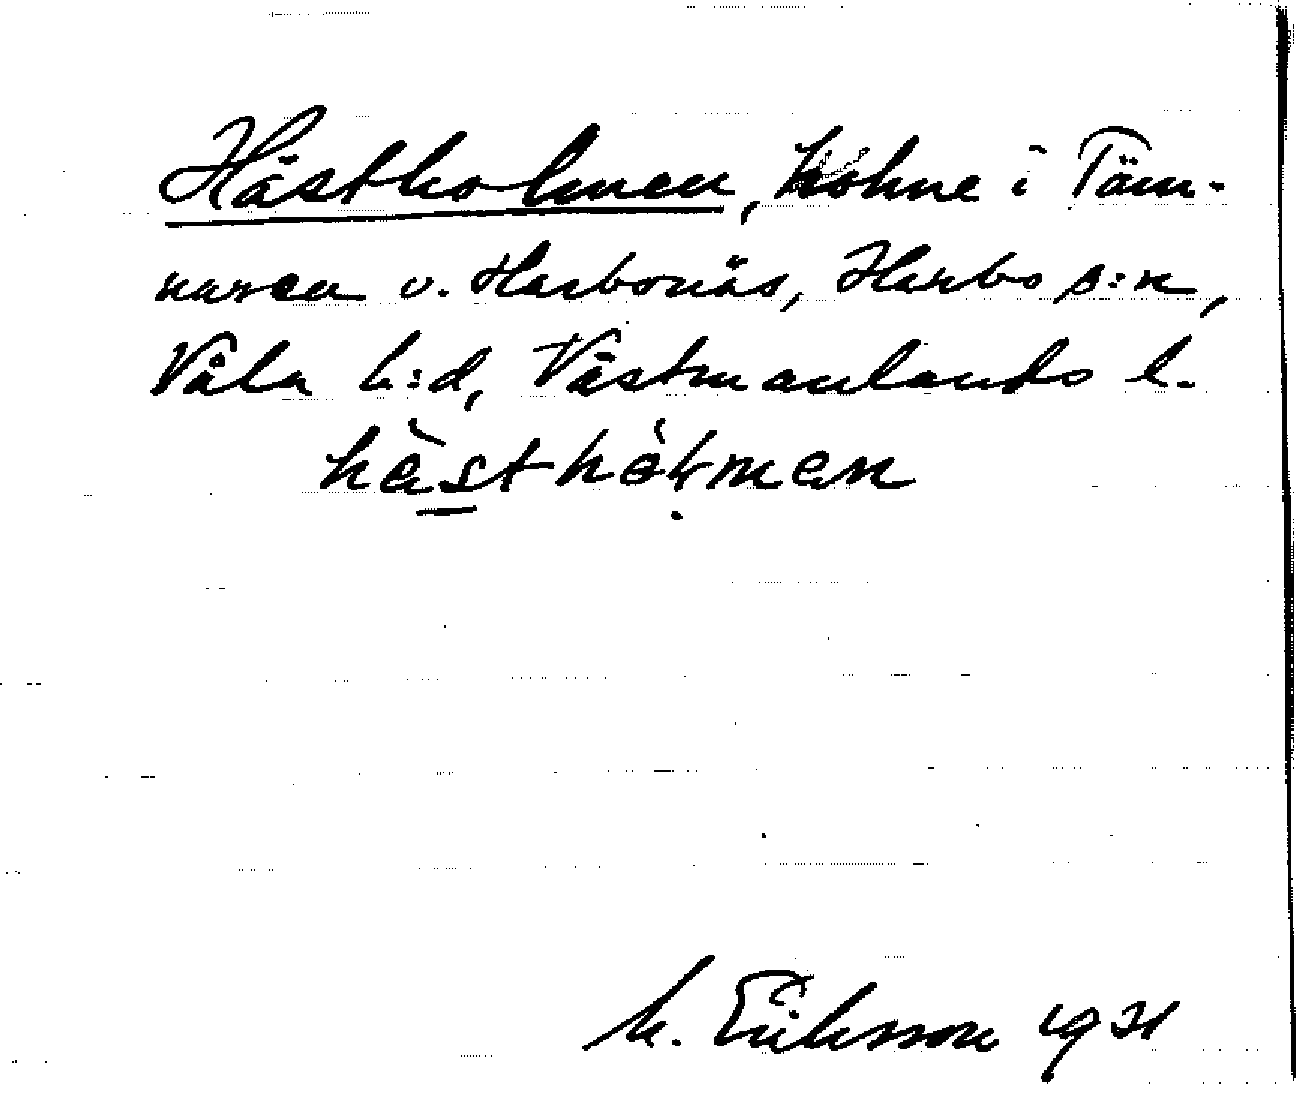 Hästholmen, holme i Täm-
naren v. Harbonäs, Harbo s:n,
Våla h:d, Västmanlands l.
hàsthȯḷmen
M. Eriksson 1931